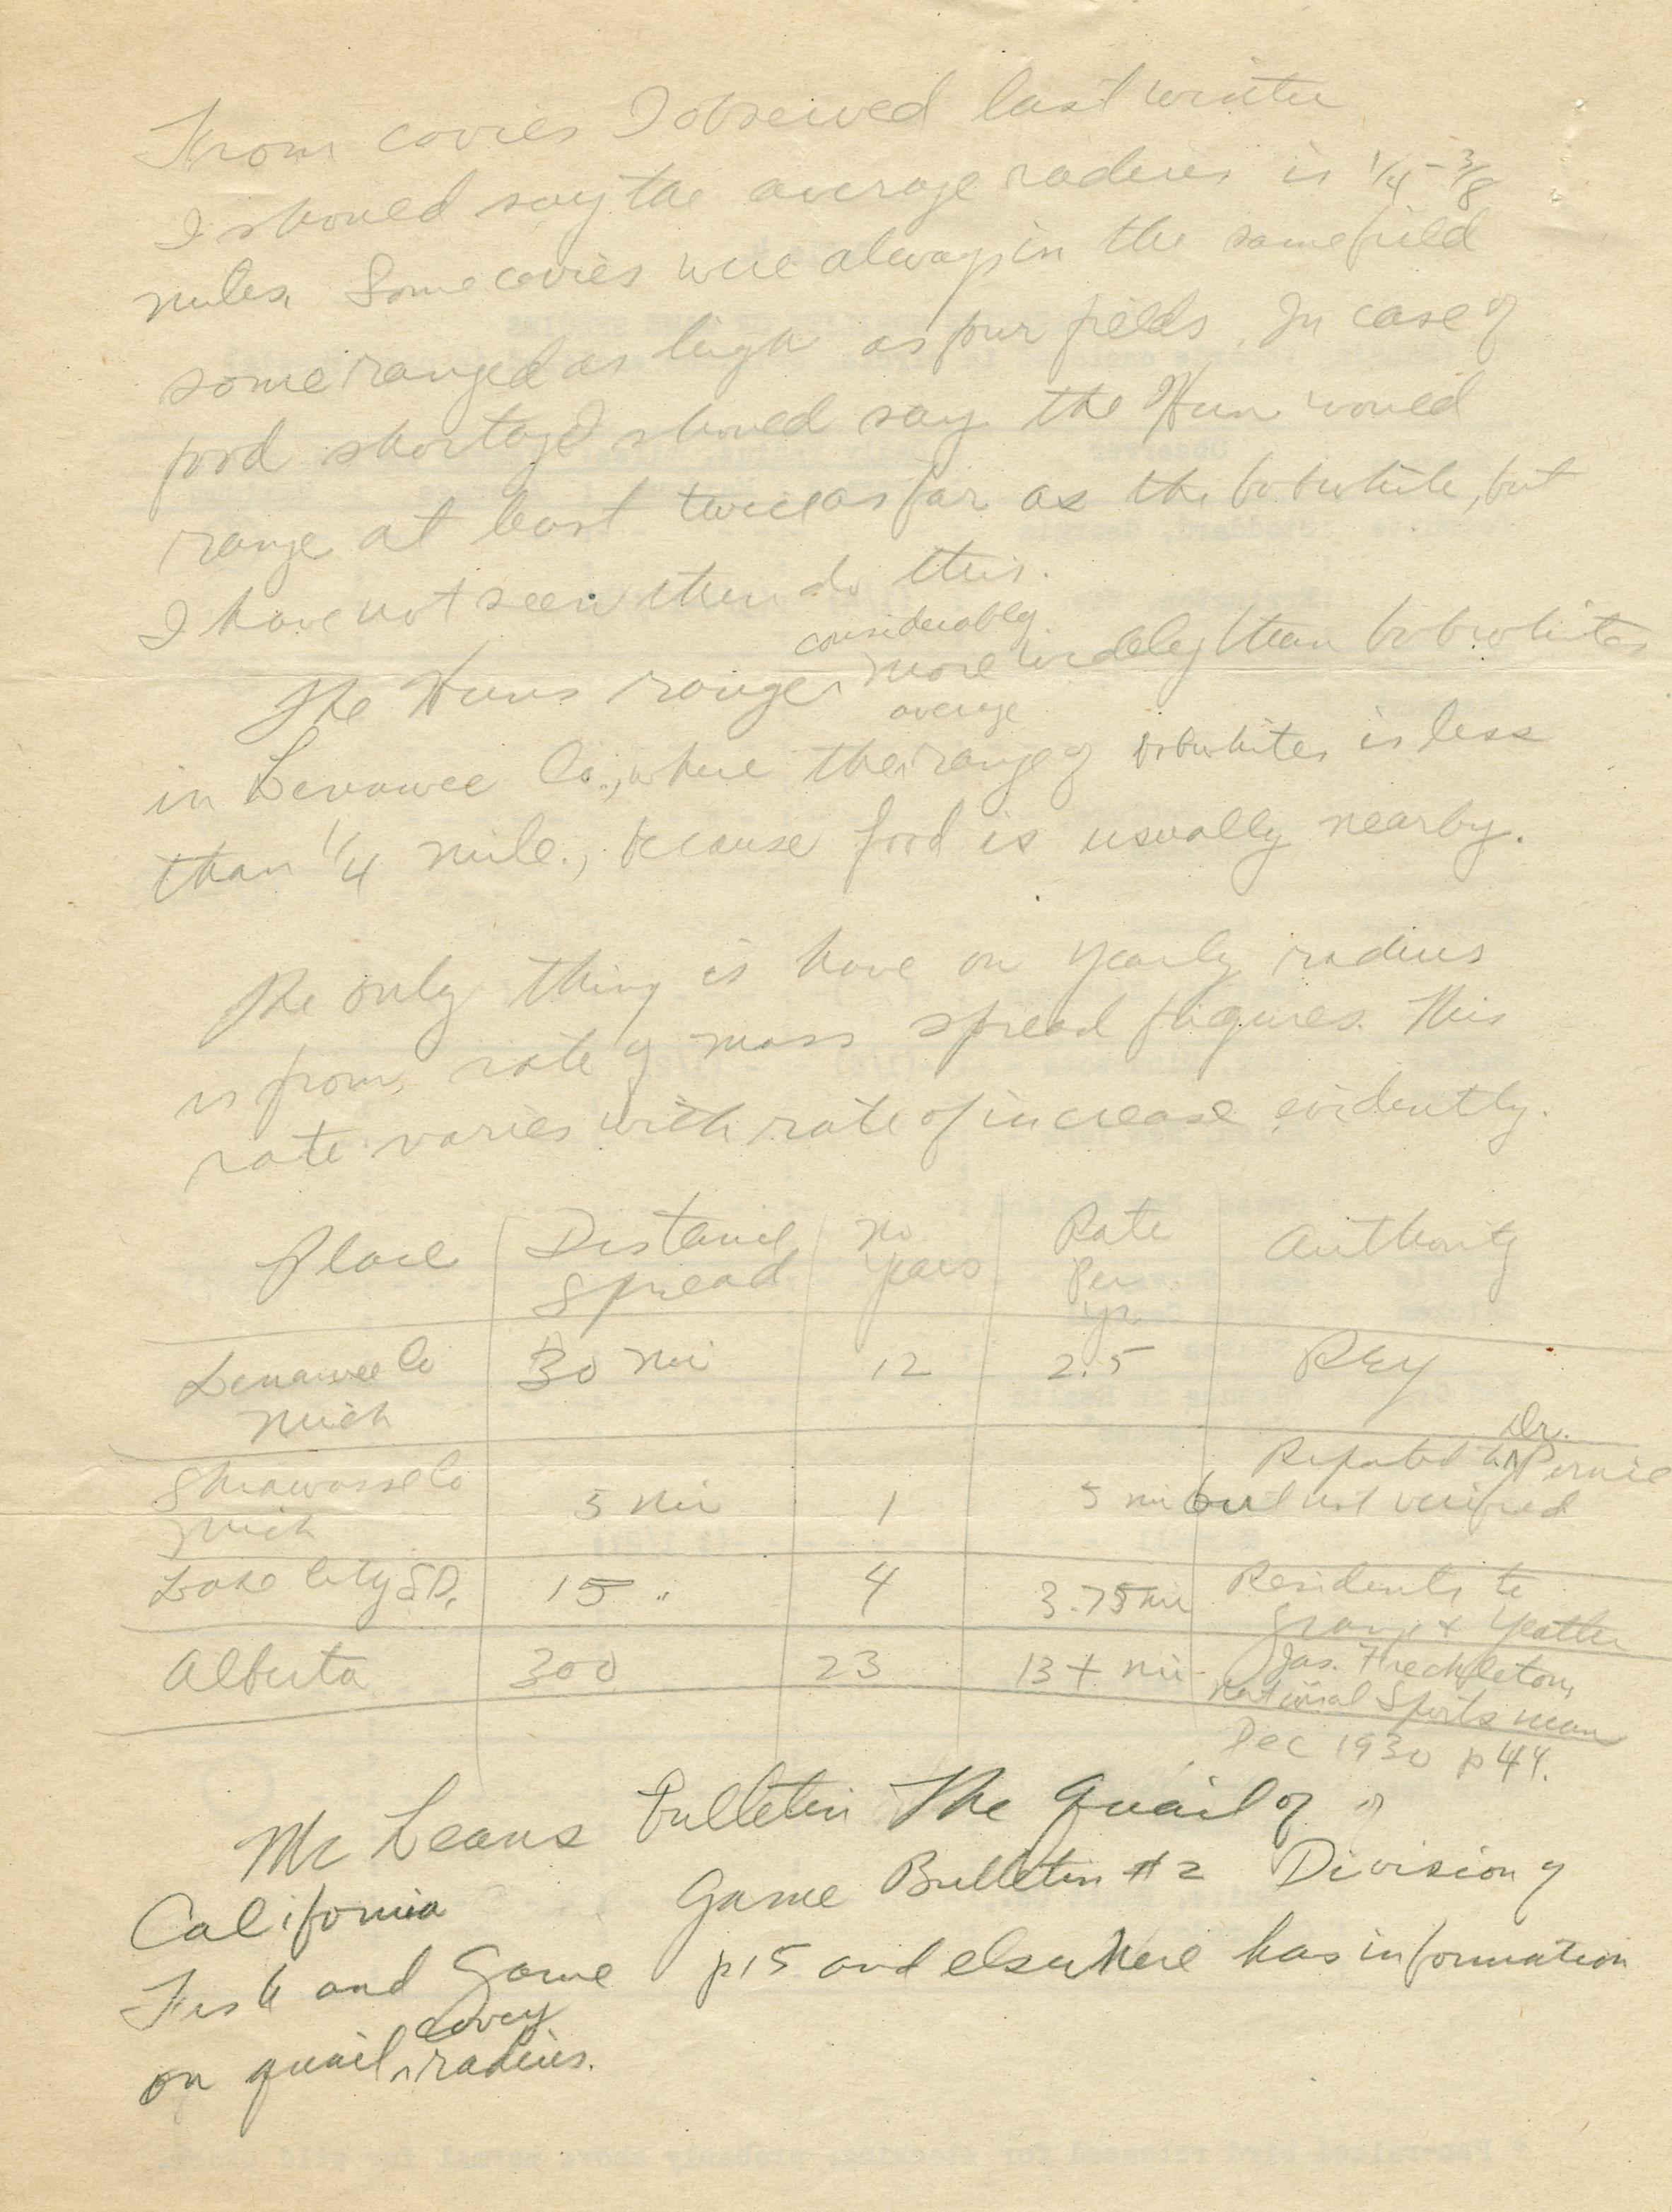 From covies I observed last winter
I should say the average radius is 1/4 - 3/8
miles. Some covies were always in the same field
some ranged as high as four fields. In case of
food shortage I should say the Hun would
range at least twice as far as the bobwhite, but
I have not seen them do this.
The Huns range considerably more widely than bobwhites
in Lenawee Co., where the average range of bobwhites is less
than 1/4 mile., because food is usually nearby.
The only thing is have on yearly radius
is from rate of mass spread figures. This
rate varies with rate of increase evidently.
Place | Distance Spread | No Years | Rate Per yr | Authority
Lenawee Co Mich | 30 mi | 12 | 2.5 | REY
Shiawassee Co Mich | 5 mi | 1 | 5 mi | Reported by Dr. but not verified
Lake City S.D. | 15 " | 4 | 3.75 mi | Residents to Grange & Yeatter
Alberta | 300 | 23 | 13 + mi | Jas. Freckleton, National Sportsman Dec 1930 p 44.
McLeans Bulletin The Quail of "
California Game Bulletin #2 Division of
Fish and Game p15 and elsewhere has information
on quail covey radius.